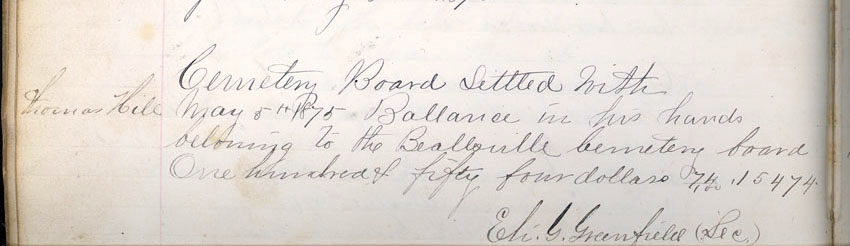 Cemetery Board Settled With
Thomas Hill May 5th 1875 Ballance in his hands
beloning to the Beallsville cemetery board
One hundred & fifty four dollars 74/100 154 74
Eli. G. Greenfield (Sec.)